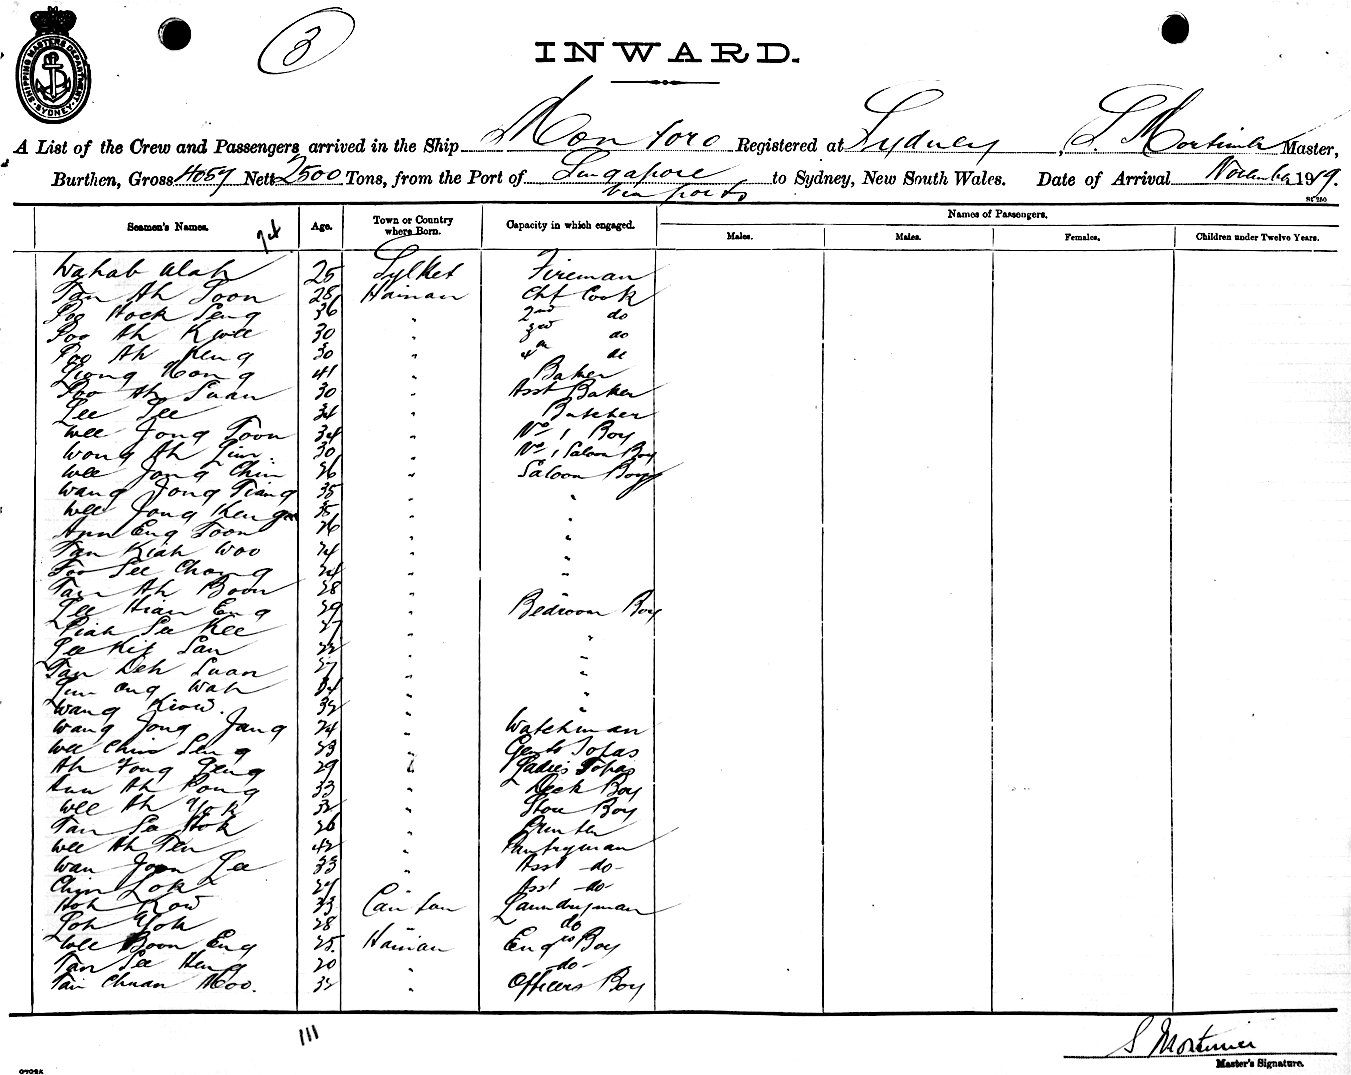 3
SHIPPING MASTERS DEPARTMENT SYDNEY
INWARD.
A List of the Crew and Passengers arrived in the Ship Montoro Registered at Sydney, S. Mortimer Master,
Burthen, Gross 4057 Nett 2500 Tons, from the Port of Singapore to Sydney, New South Wales. Date of Arrival November 1919.
via ports
St 250
Seamen's Names. Age. Town or Country where Born. Capacity in which engaged. Names of Passengers.
Males. Males. Females. Children under Twelve Years.
Wahab Ulah 25 Sylhet Fireman
Tan Ah Soon 28 Hainan Chf Cook
Foo Hock Seng 36 " 2nd do
Foo Ah Kwee 30 " 3rd do
Foo Ah Keng 30 " 4th do
Liong Hong 41 " Baker
Foo Ah Suan 30 " Asst Baker
Lee See 34 " Butcher
Wee Jong Toon 34 " No 1 Boy
Wong Ah Lim. 30 " No 1 Saloon Boy
Wee Jong Chin 26 " Saloon Boy
Wang Jong Tiang 35 " "
Wee Jong Keng 35 " "
Ann Eng Toon 26 " "
Tan Kiah Woo 24 " "
Foo See Chong 24 " "
Tan Ah Boon 28 " "
Lee Hian Eng 29 " Bedroom Boy
Piah See Kee 27 " "
Lee Kit San 22 " "
Tan Deh Suan 27 " "
Lim Ong Wah 34 " "
Wang Kiow. 32 " "
Wang Jong Jang 24 " Watchman
Wee Chin Seng 23 " Gents Topas
Ah Fong Geng 29 " Ladies Topas
Ann Ah Pong 33 " Deck Boy
Wee Ah Yok 32 " Store Boy
Tan See Hok 26 " Printer
Wee Ah Ten 42 " Pantryman
Wan Joon Lee 33 " Asst -do-
Chin Lok 27 " Asst -do-
Hoh Kow 33 Canton Laundryman
Loh Yok 28 " do
Wee Boon Eng 25. Hainan Engrs Boy
Tan See Heng 20 " -do-
Tan Chuan Moo. 32 " Officers Boy
111
S Mortimer
Master's Signature.